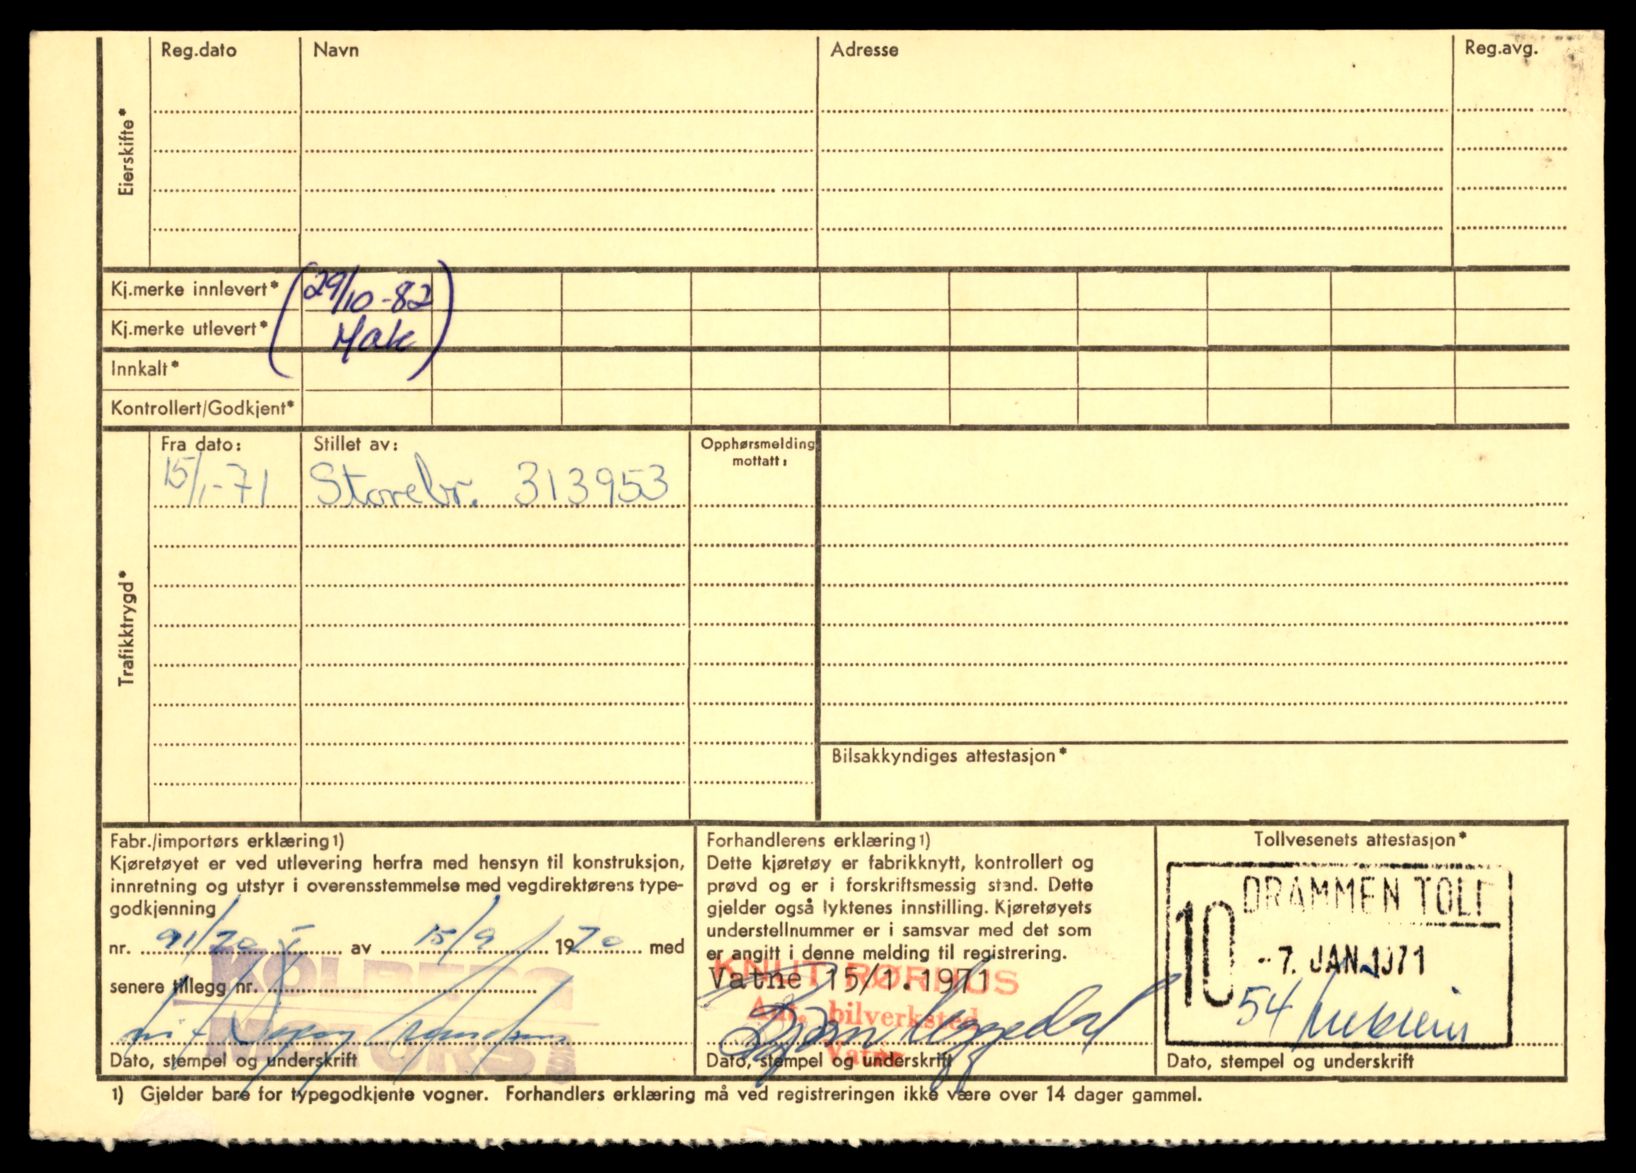 Reg.dato Navn Adresse Reg.avg.
Eierskifte*
Kj.merke innlevert* 29/10-82
Kj.merke utlevert* Mak
Innkalt*
Kontrollert/Godkjent*
Trafikktrygd*
Fra dato: Stillet av: Opphørsmelding
mottatt:
15/1-71 Storebr. 313953
Bilsakkyndiges attestasjon*
Fabr./importørs erklæring 1)
Kjøretøyet er ved utlevering herfra med hensyn til konstruksjon,
innretning og utstyr i overensstemmelse med vegdirektørens type-
godkjenning
nr. 91/70 I av 15/9 1970 med
senere tillegg nr.
KOLBERG
MOTORS
Dato, stempel og underskrift
Forhandlerens erklæring 1)
Dette kjøretøy er fabrikknytt, kontrollert og
prøvd og er i forskriftsmessig stand. Dette
gjelder også lyktenes innstilling. Kjøretøyets
understellnummer er i samsvar med det som
er angitt i denne melding til registrering.
KNUT RØRHUS
Vatne 15/1.1971
Aut. bilverksted
Vatne
Dato, stempel og underskrift
Tollvesenets attestasjon*
DRAMMEN TOLL
10
-7. JAN. 1971
54
Dato, stempel og underskrift
1) Gjelder bare for typegodkjente vogner. Forhandlers erklæring må ved registreringen ikke være over 14 dager gammel.